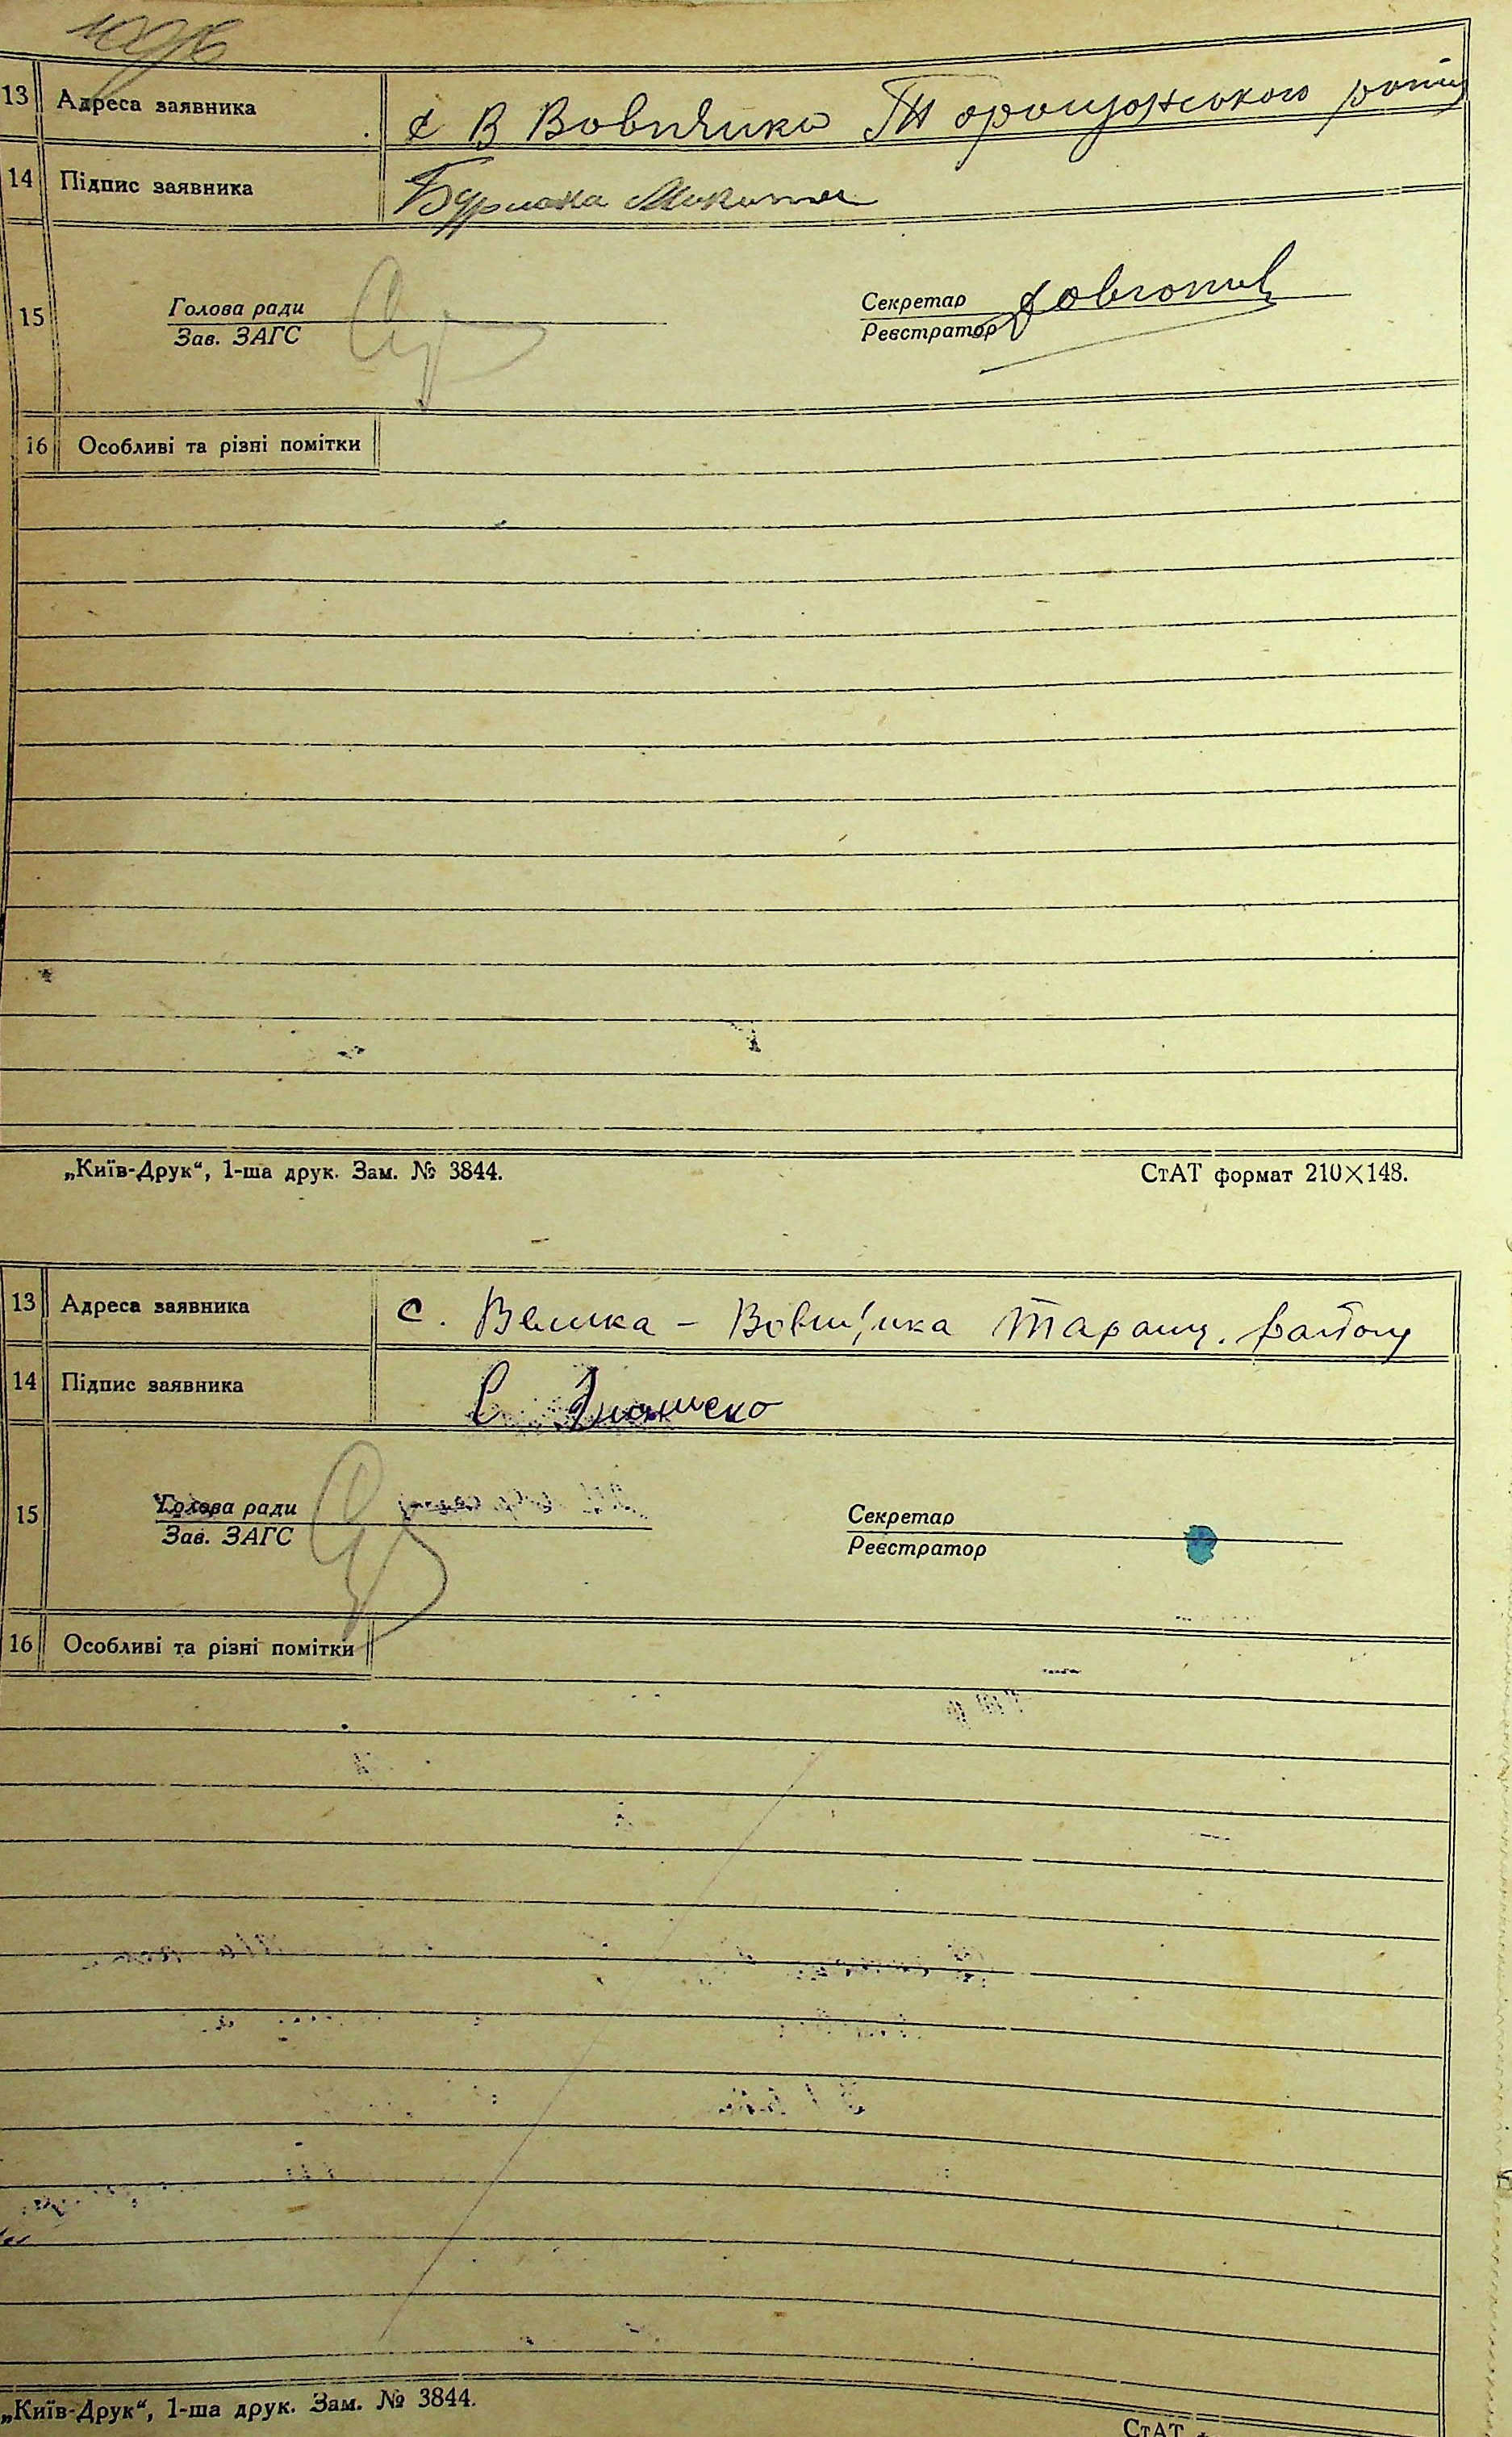 13 Адреса заявника с В Вовнянка
14 Підпис заявника Бурлака Микита
15 Голова ради Секретар
Зав. ЗАГС Реєстратор
16 Особливі та різні помітки
„Київ-Друк“, 1-ша друк. Зам. № 3844. СтАТ формат 210×148.
13 Адреса заявника с. Велика - Таращ. району
14 Підпис заявника С
15 Голова ради Секретар
Зав. ЗАГС Реєстратор
16 Особливі та різні помітки
„Київ-Друк“, 1-ша друк. Зам. № 3844. СтАТ